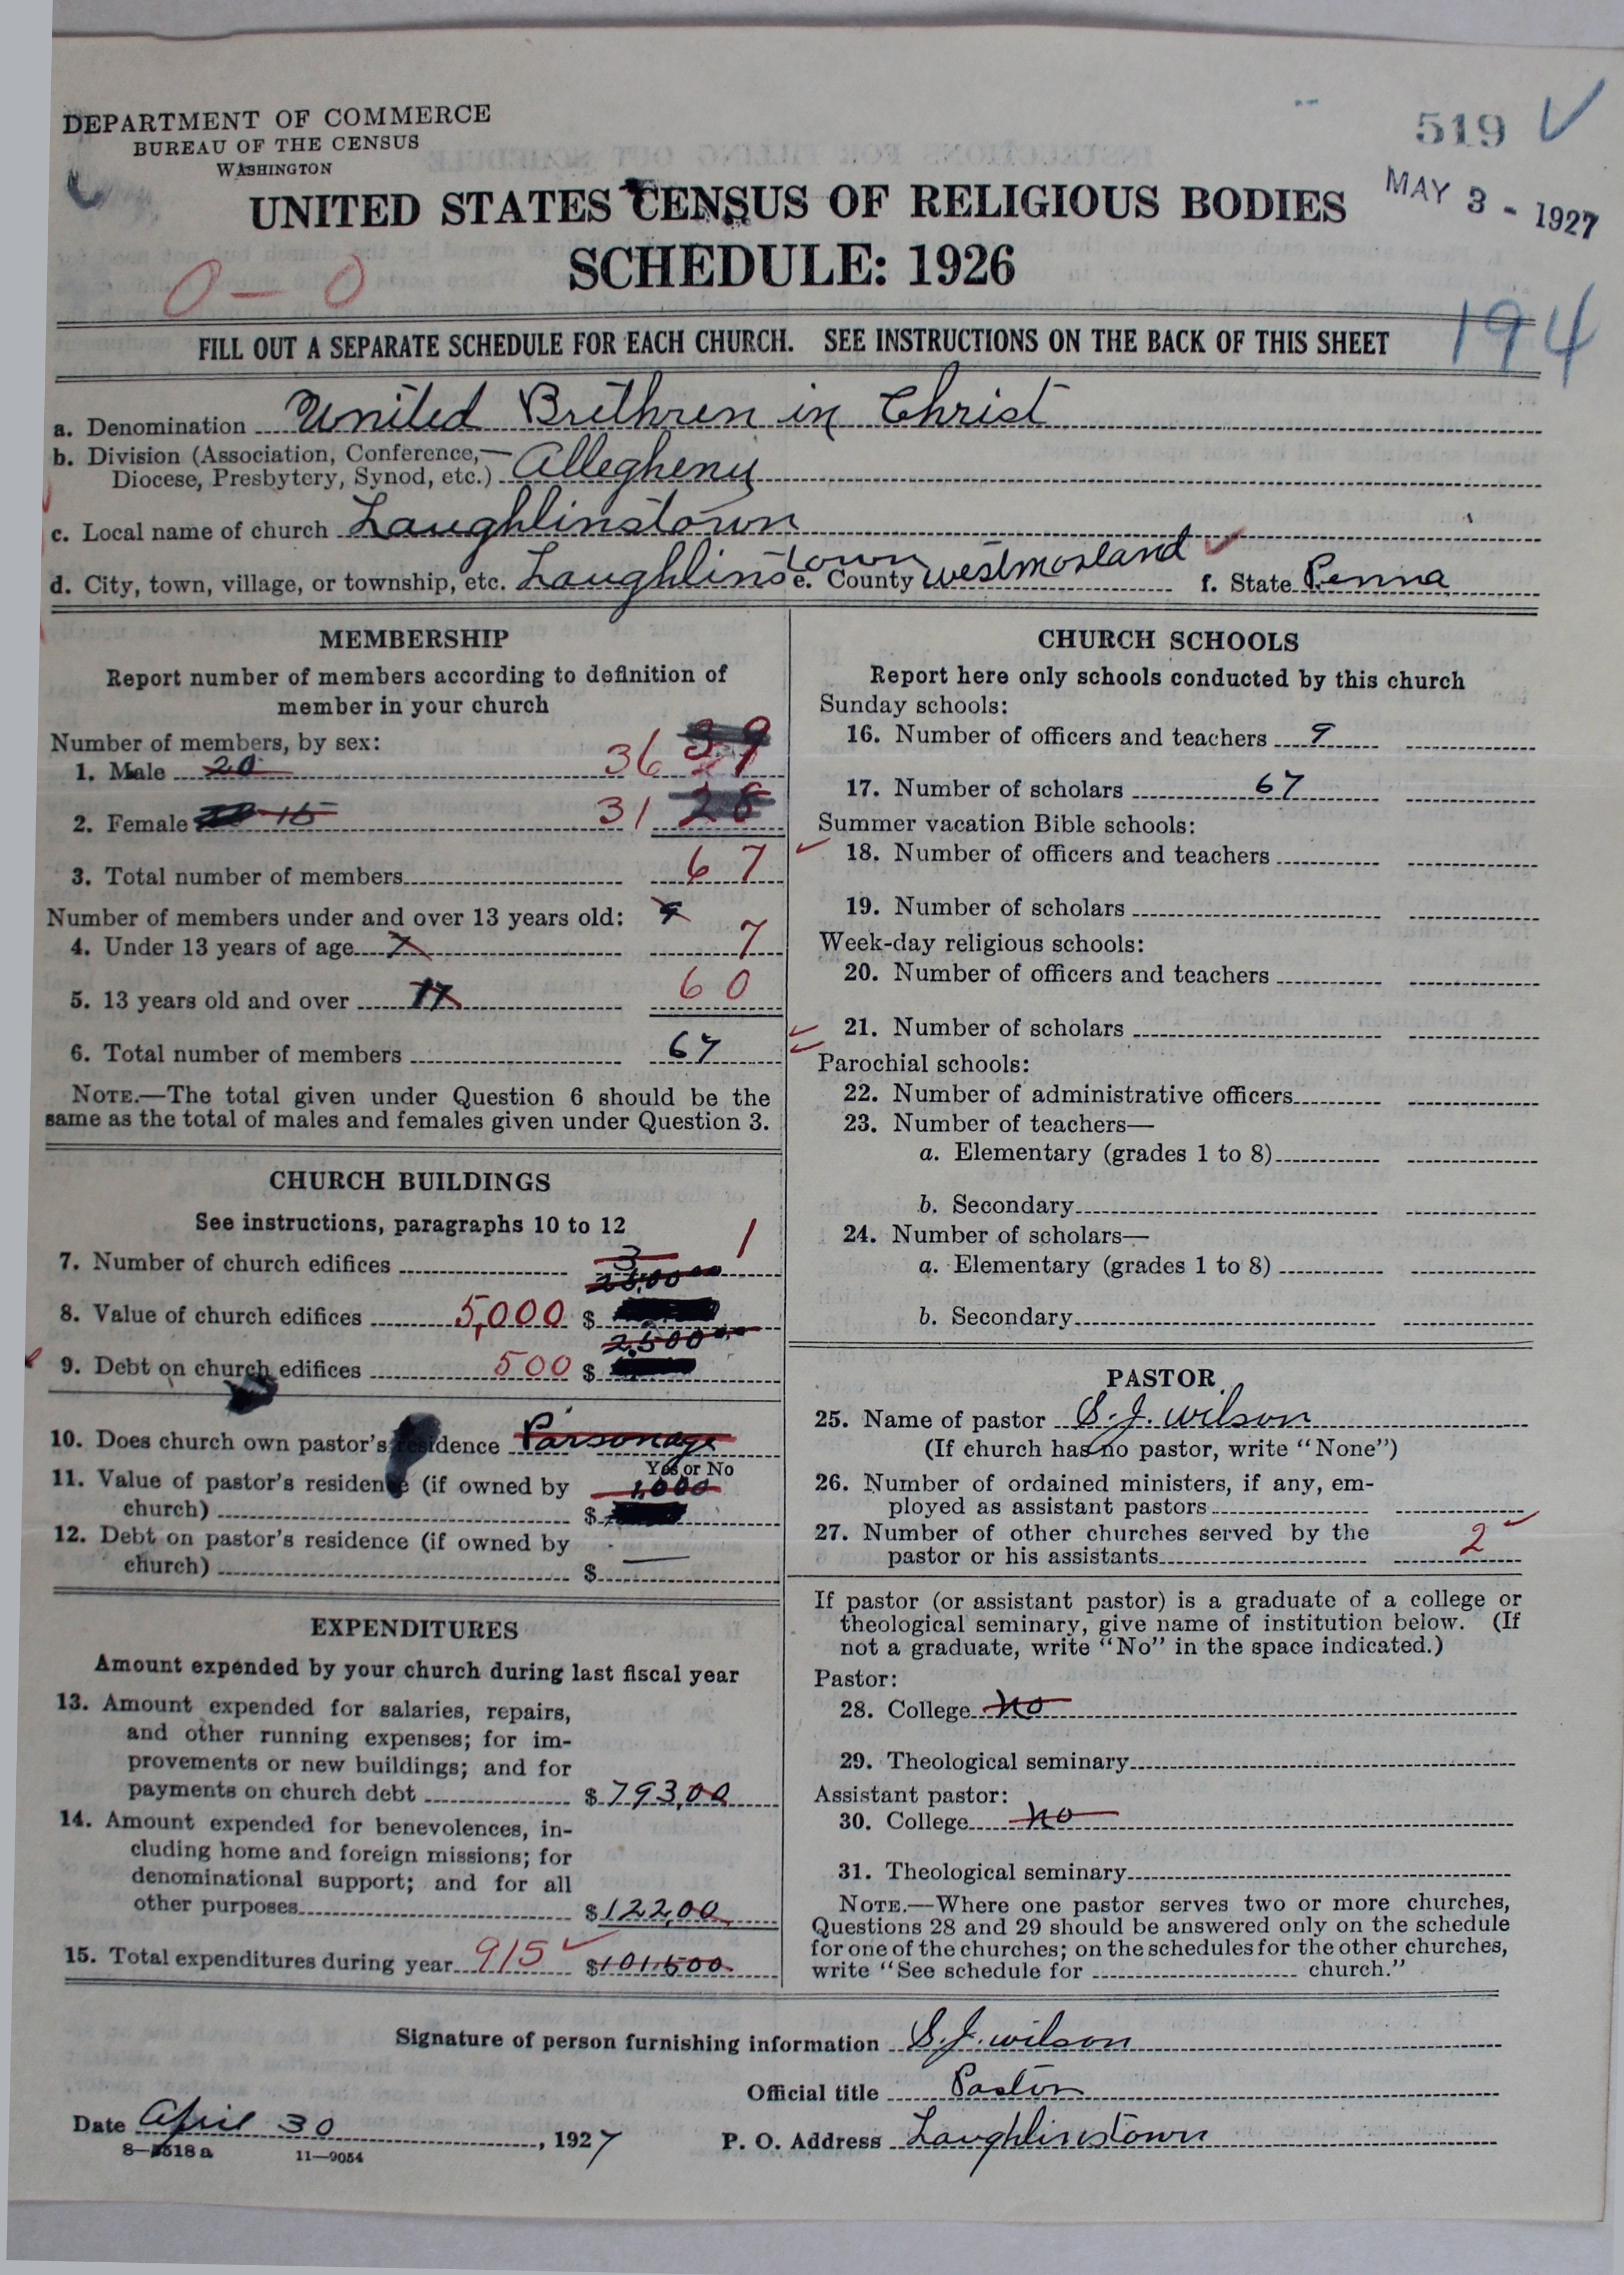 DEPARTMENT OF COMMERCE
BUREAU OF THE CENSUS
WASHINGTON
519
MAY 3 - 1927
UNITED STATES CENSUS OF RELIGIOUS BODIES
SCHEDULE: 1926
0 — 0
194
FILL OUT A SEPARATE SCHEDULE FOR EACH CHURCH. SEE INSTRUCTIONS ON THE BACK OF THIS SHEET
a. Denomination United Brethren in Christ
b. Division (Association, Conference, Diocese, Presbytery, Synod, etc.) Allegheny
c. Local name of church Laughlinstown
d. City, town, village, or township, etc. Laughlinstown e. County Westmorland f. State Penna
MEMBERSHIP
Report number of members according to definition of
member in your church
Number of members, by sex:
1. Male 20 36
2. Female 15 31 28
3. Total number of members 67
Number of members under and over 13 years old:
4. Under 13 years of age 7 7
5. 13 years old and over 60
6. Total number of members 67
NOTE.—The total given under Question 6 should be the
same as the total of males and females given under Question 3.
CHURCH BUILDINGS
See instructions, paragraphs 10 to 12
7. Number of church edifices 3 1
8. Value of church edifices 5,000 $
9. Debt on church edifices 500 $ 2,500
10. Does church own pastor's residence Parsonage
Yes or No
11. Value of pastor's residence (if owned by
church) $ 1,000
12. Debt on pastor's residence (if owned by
church) $ —
EXPENDITURES
Amount expended by your church during last fiscal year
13. Amount expended for salaries, repairs,
and other running expenses; for im-
provements or new buildings; and for
payments on church debt $ 793,00
14. Amount expended for benevolences, in-
cluding home and foreign missions; for
denominational support; and for all
other purposes $ 122,00
15. Total expenditures during year 915 $ 101.500
CHURCH SCHOOLS
Report here only schools conducted by this church
Sunday schools:
16. Number of officers and teachers 9
17. Number of scholars 67
Summer vacation Bible schools:
18. Number of officers and teachers
19. Number of scholars
Week-day religious schools:
20. Number of officers and teachers
21. Number of scholars
Parochial schools:
22. Number of administrative officers
23. Number of teachers—
a. Elementary (grades 1 to 8)
b. Secondary
24. Number of scholars—
a. Elementary (grades 1 to 8)
b. Secondary
PASTOR
25. Name of pastor S. J. Wilson
(If church has no pastor, write "None")
26. Number of ordained ministers, if any, em-
ployed as assistant pastors
27. Number of other churches served by the
pastor or his assistants 2
If pastor (or assistant pastor) is a graduate of a college or
theological seminary, give name of institution below. (If
not a graduate, write "No" in the space indicated.)
Pastor:
28. College No
29. Theological seminary
Assistant pastor:
30. College No
31. Theological seminary
NOTE.—Where one pastor serves two or more churches,
Questions 28 and 29 should be answered only on the schedule
for one of the churches; on the schedules for the other churches,
write "See schedule for church."
Signature of person furnishing information S. J. Wilson
Official title Pastor
Date April 30, 1927
P. O. Address Laughlinstown
8—5518 a 11—9054